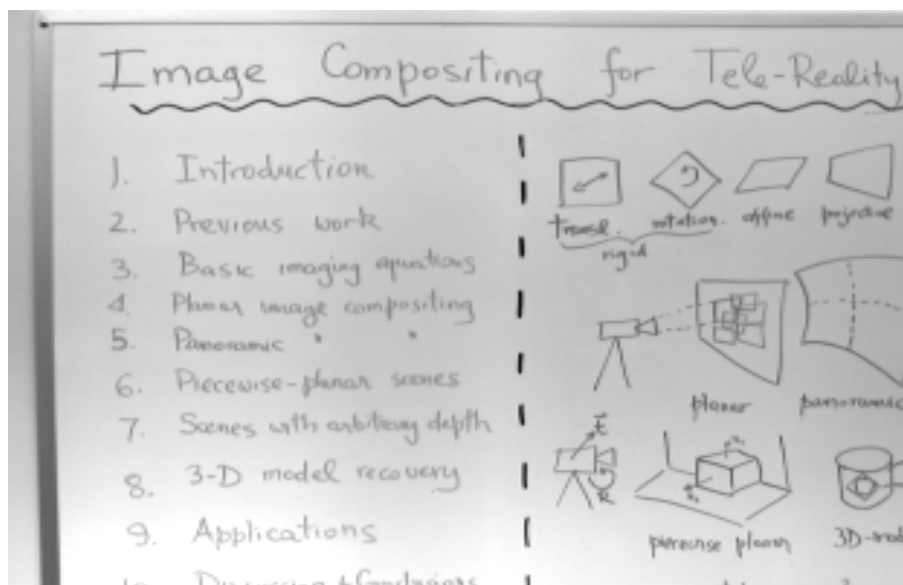 Image Compositing for Tele-Reality
1. Introduction
2. Previous work
3. Basic imaging equations
4. Planar image compositing
5. Panoramic " "
6. Piecewise-planar scenes
7. Scenes with arbitrary depth
8. 3-D model recovery
9. Applications
10. Discussion & Conclusions
transl. rotation. affine projective
rigid
planar panoramic
t
R
piecewise planar 3D-mod